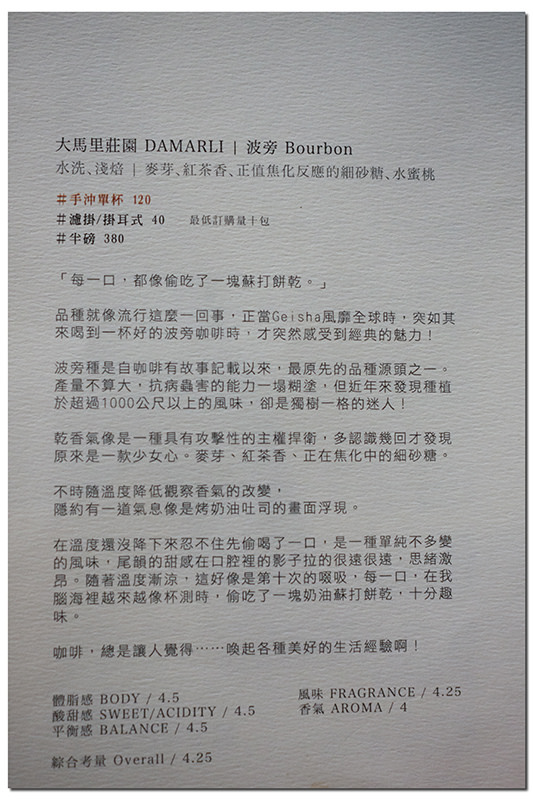 大馬里莊園 DAMARLI | 波旁 Bourbon
水洗、淺焙 | 麥芽、紅茶香、正值焦化反應的細砂糖、水蜜桃
#手沖單杯 120
#濾掛/掛耳式 40 最低訂購量十包
#半磅 380
「每一口，都像偷吃了一塊蘇打餅乾。」
品種就像流行這麼一回事，正當Geisha風靡全球時，突如其
來喝到一杯好的波旁咖啡時，才突然感受到經典的魅力！
波旁種是自咖啡有故事記載以來，最原先的品種源頭之一。
產量不算大，抗病蟲害的能力一塌糊塗，但近年來發現種植
於超過1000公尺以上的風味，卻是獨樹一格的迷人！
乾香氣像是一種具有攻擊性的主權捍衛，多認識幾回才發現
原來是一款少女心。麥芽、紅茶香、正在焦化中的細砂糖。
不時隨溫度降低觀察香氣的改變，
隱約有一道氣息像是烤奶油吐司的畫面浮現。
在溫度還沒降下來忍不住先偷喝了一口，是一種單純不多變
的風味，尾韻的甜感在口腔裡的影子拉的很遠很遠，思緒激
昂。隨著溫度漸涼，這好像是第十次的啜吸，每一口，在我
腦海裡越來越像杯測時，偷吃了一塊奶油蘇打餅乾，十分趣
味。
咖啡，總是讓人覺得……喚起各種美好的生活經驗啊！
體脂感 BODY / 4.5
酸甜感 SWEET/ACIDITY / 4.5
平衡感 BALANCE / 4.5
風味 FRAGRANCE / 4.25
香氣 AROMA / 4
綜合考量 Overall / 4.25